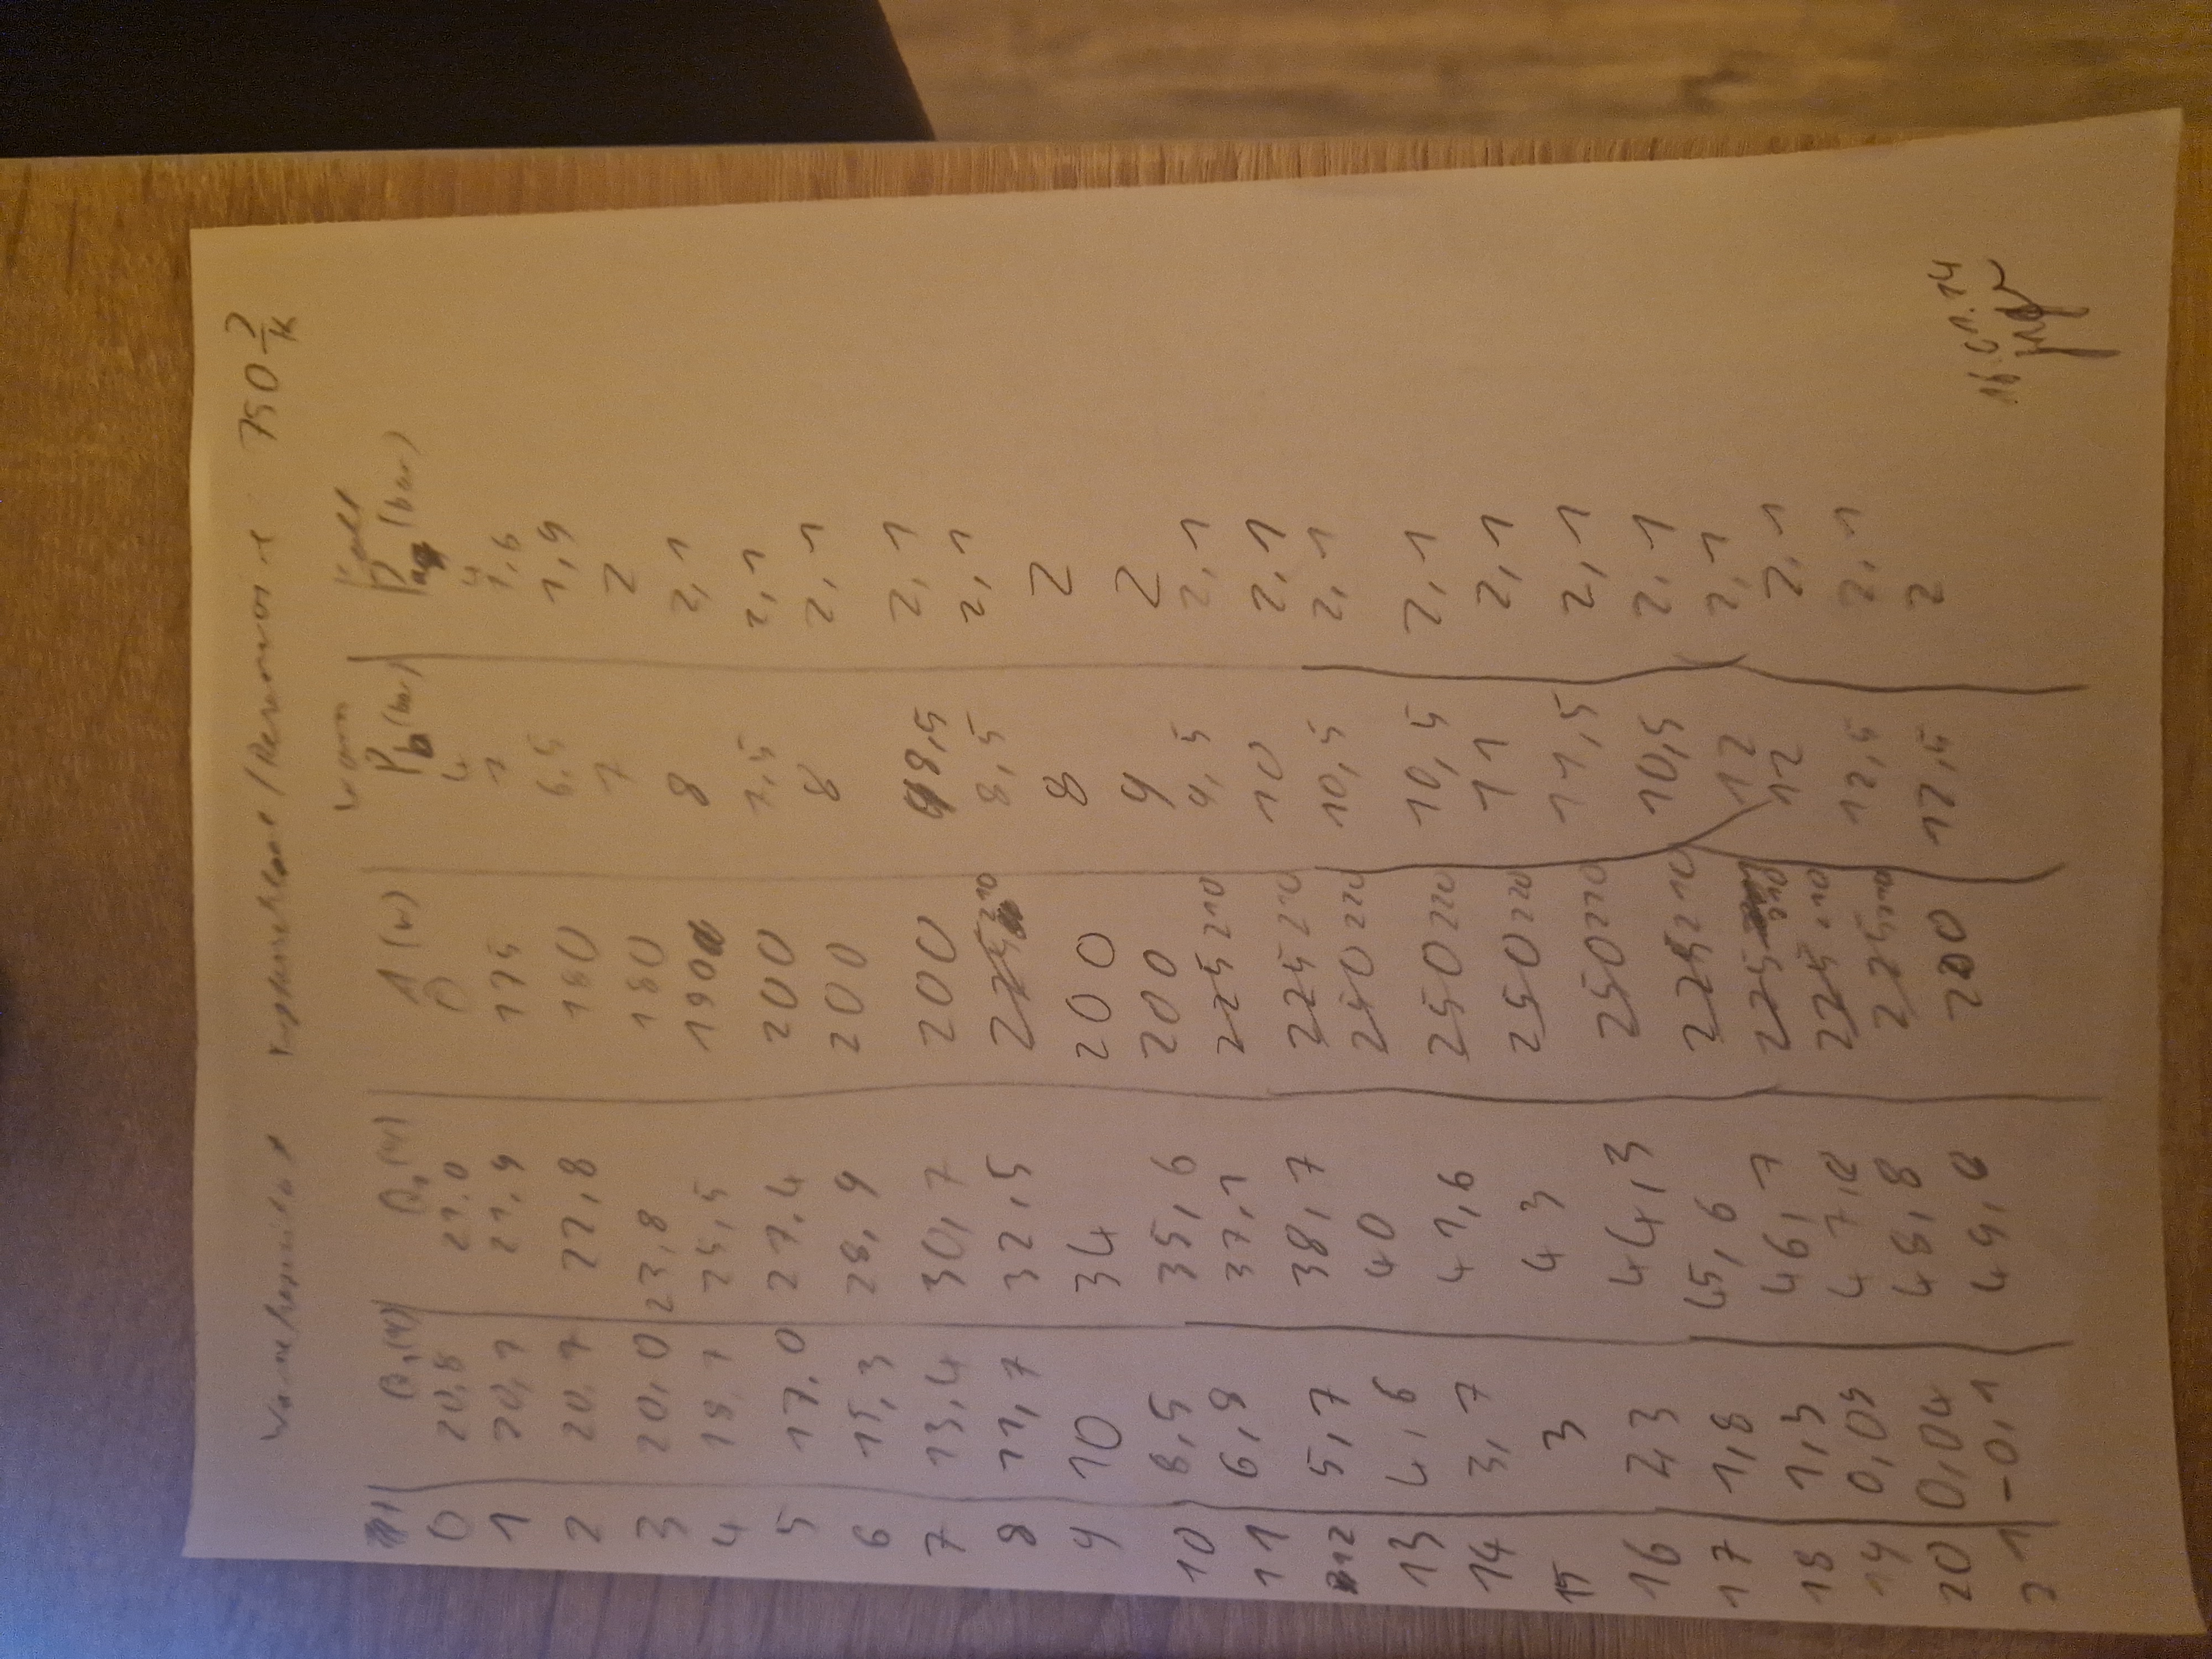 Wärmekapazität Kupferschlange/Reservoire 750 J/K
warm kalt
t (°C) (°C) A (W) Pb (bar) Pa (bar)
0 20,8 21,0 0 4 4
1 20,7 21,9 175 7 1,6
2 20,7 22,8 180 6,5 1,9
3 20,0 23,8 180 7 2
4 18,7 25,5 190 8 2,1
5 17,0 27,4 200 7,5 2,1
6 15,3 28,9 200 8 2,1
7 13,4 30,7 200 8,5 2,1
8 11,7 32,5 225 210 8,5 2,1
9 10 34 200 8 2
10 8,5 35,6 200 9 2
11 6,8 37,1 225 210 9,5 2,1
12 5,7 38,7 225 210 10 2,1
13 4,6 40 250 220 10,5 2,1
14 3,7 41,6 250 220 10,5 2,1
15 3 43 250 220 11 2,1
16 2,3 44,3 250 220 11,5 2,1
17 1,8 45,6 225 210 10,5 2,1
18 1,3 46,7 225 210 12 2,1
19 0,09 47,8 225 210 12 2,1
20 0,04 48,8 225 210 12,5 2,1
21 -0,1 49,8 200 12,5 2
16.01.14